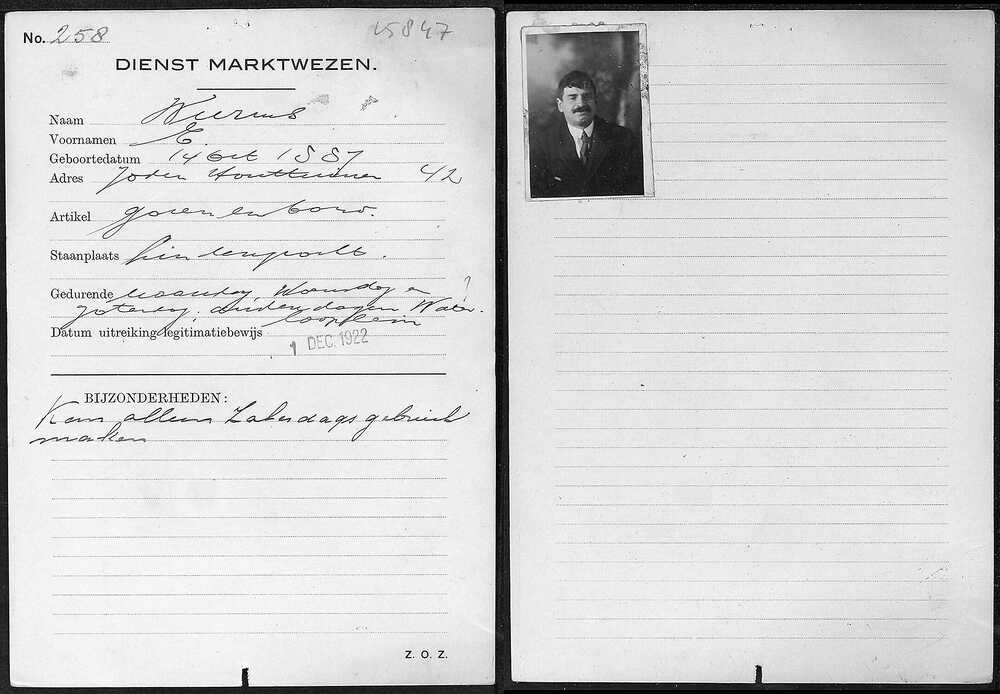 No. 258 15847
DIENST MARKTWEZEN.
Naam
Voornamen E.
Geboortedatum 14 Oct 1887
Adres Joden Houttuinen 42
Artikel goven en band.
Staanplaats Lindengracht.
Gedurende Maandag, Woensdag en ?
zaterdag. andere dagen Water-
looplein
Datum uitreiking legitimatiebewijs
1 DEC. 1922
BIJZONDERHEDEN:
Kan alleen Zaterdags gebruik
maken
Z. O. Z.